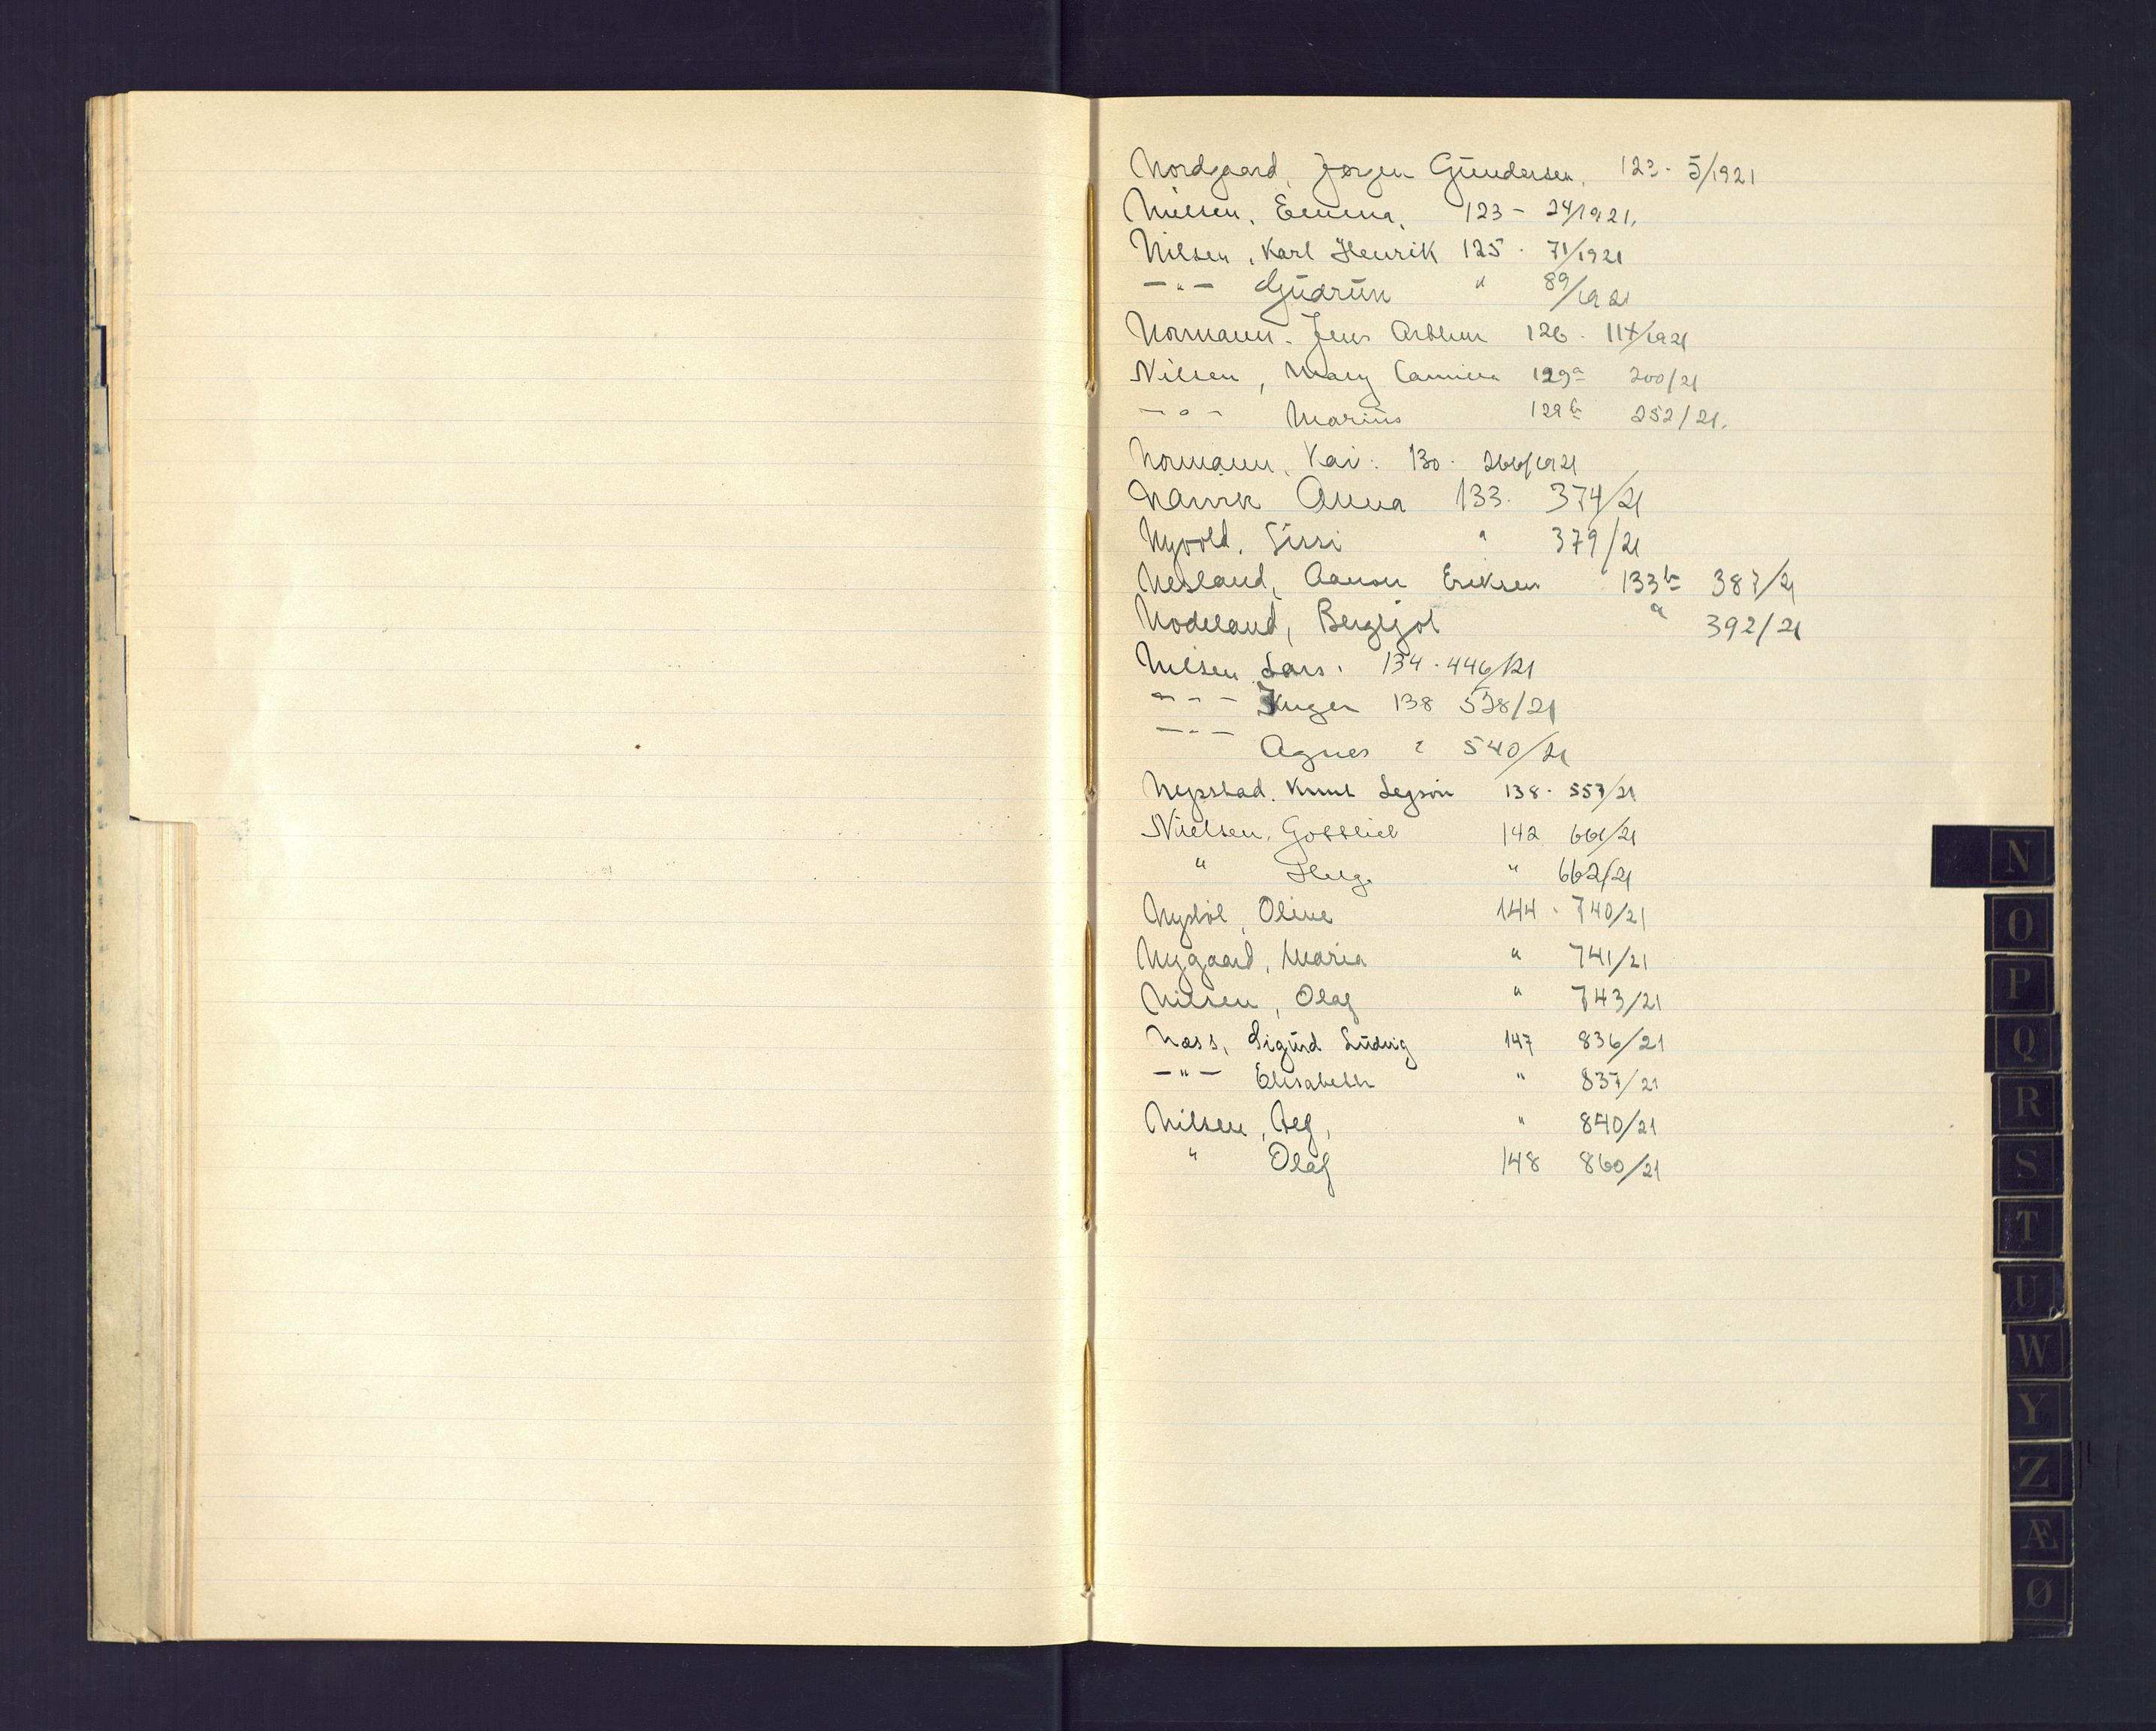 Nordgaard, Jørgen Gundersen. 123 - 5/1921
Nielsen, Emma, 123 - 24/1921.
Nilsen, Karl Henrik 125 - 71/1921
—"— Gudrun " 89/1921
Normann. Jens Arthur 126 - 114/1921
Nilsen, Mary Camilla 129a 200/21
—"— Marius 129b 252/21.
Normann, Kai: 130 - 266/1921
Narvik Anna 133. 374/21
Nyvold, Sissi " 379/21
Nesland, Aanon Eriksen 133b 387/21
Nodeland, Bergljot " 392/21
Nilsen Lars. 134 - 446/21
—"— Inger 138 538/21
—"— Agnes " 540/21
Nepstad. Knut 138 - 557/21
Nielsen, Gottlieb 142 661/21
" Helge " 662/21
Nystøl, Oline 144 - 740/21
Nygaard, Maria " 741/21
Nilsen, Olaf " 743/21
Næss, Sigurd Ludvig 147 836/21
—"— Elisabeth " 837/21
Nilsen, Alf, " 840/21
" Olaf 148 860/21
N
O
P
Q
R
S
T
U
W
Y
Z
Æ
Ø